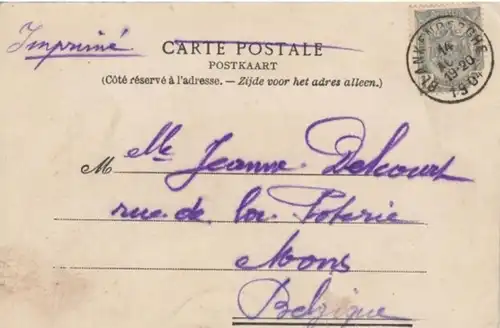 Imprimé
CARTE POSTALE
POSTKAART
(Côté réservé à l'adresse. — Zijde voor het adres alleen.)
BLANKENBERGHE
14
19-20
1904
M Mlle Jeanne Delcourt
rue de la Poterie
Mons
Belgique